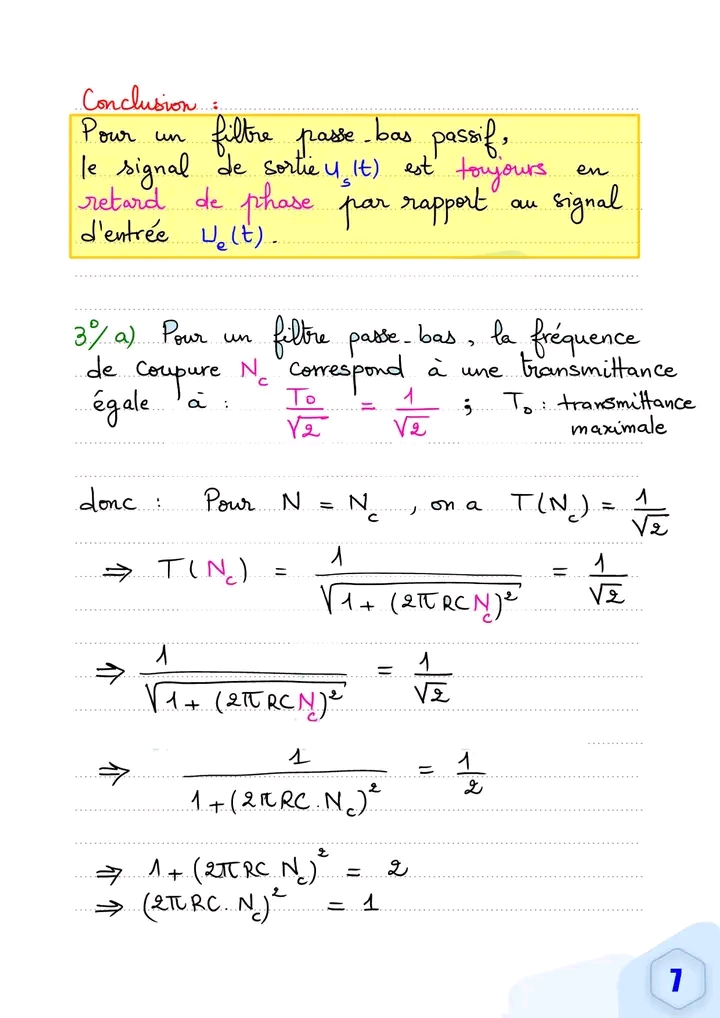 Conclusion :
Pour un filtre passe-bas passif,
le signal de sortie u_s(t) est toujours en
retard de phase par rapport au signal
d'entrée U_e(t).
3°/ a) Pour un filtre passe-bas, la fréquence
de coupure N_c correspond à une transmittance
égale à : T₀/√2 = 1/√2 ; T₀ : transmittance
maximale
donc : Pour N = N_c , on a T(N_c) = 1/√2
⇒ T(N_c) = 1/√(1 + (2π RC N_c)²) = 1/√2
⇒ 1/√(1 + (2π RC N_c)²) = 1/√2
⇒ 1/(1 + (2π RC . N_c)²) = 1/2
⇒ 1 + (2π RC N_c)² = 2
⇒ (2π RC . N_c)² = 1
7